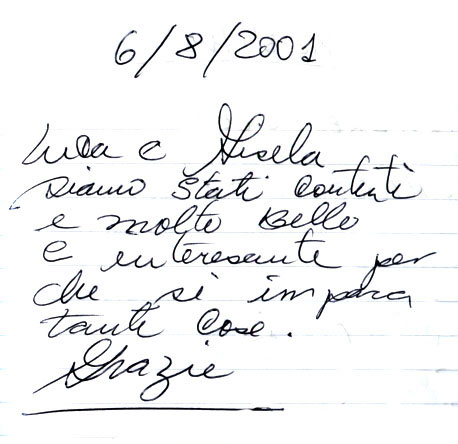 6/8/2001
Luca e Gisela
siamo stati contenti
e molto bello
e interesante per
che si impara
tante cose.
Grazie